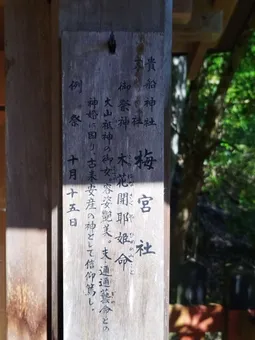 貴船神社
末社 梅宮社
御祭神 木花開耶姫命
大山祇神の御女、容姿艶美。天通通藝命との
神婚に因り、古来安産の神として信仰篤し。
例祭 十月十五日